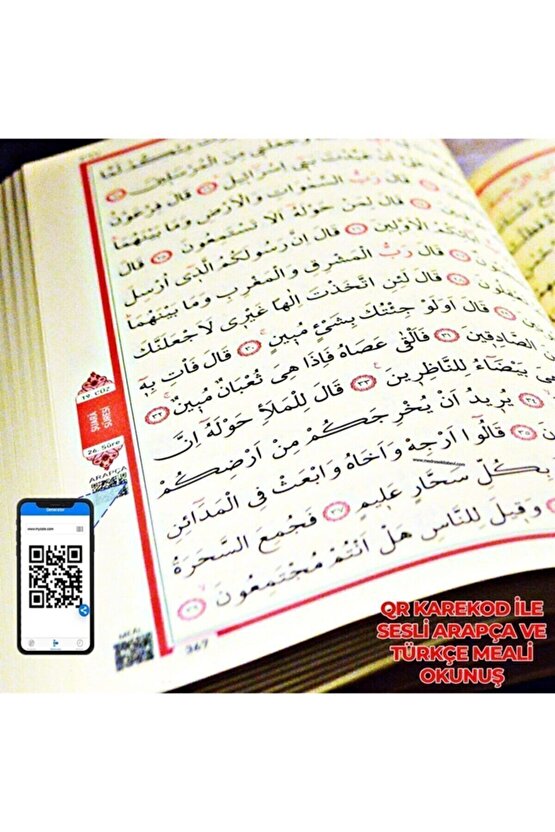 قَالَ فِرْعَوْنُ
قَالَ رَبُّ السَّمٰوَاتِ وَالْاَرْضِ وَمَا بَيْنَهُمَا
قَالَ لِمَنْ حَوْلَهُٓ اَلَا تَسْتَمِعُونَ ﴿٢٥﴾ قَالَ
اٰبَٓائِكُمُ الْاَوَّلٖينَ ﴿٢٦﴾ قَالَ اِنَّ رَسُولَكُمُ الَّذٖٓي اُرْسِلَ
قَالَ رَبُّ الْمَشْرِقِ وَالْمَغْرِبِ وَمَا بَيْنَهُمَا
قَالَ لَئِنِ اتَّخَذْتَ اِلٰهًا غَيْرٖي لَاَجْعَلَنَّكَ
قَالَ اَوَلَوْ جِئْتُكَ بِشَيْءٍ مُبٖينٍ ﴿٣٠﴾ قَالَ فَأْتِ بِهٖٓ
الصَّادِقٖينَ ﴿٣١﴾ فَاَلْقٰى عَصَاهُ فَاِذَا هِيَ ثُعْبَانٌ مُبٖينٌ ﴿٣٢﴾
هِيَ بَيْضَٓاءُ لِلنَّاظِرٖينَ ﴿٣٣﴾ قَالَ لِلْمَلَأِ حَوْلَهُٓ اِنَّ
يُرٖيدُ اَنْ يُخْرِجَكُمْ مِنْ اَرْضِكُمْ
قَالُٓوا اَرْجِهْ وَاَخَاهُ وَابْعَثْ فِي الْمَدَٓائِنِ
بِكُلِّ سَحَّارٍ عَلٖيمٍ ﴿٣٧﴾ فَجُمِعَ السَّحَرَةُ
وَقٖيلَ لِلنَّاسِ هَلْ اَنْتُمْ مُجْتَمِعُونَ ﴿٣٩﴾
19. CÜZ
26. Sûre
ARAPÇA
MEAL
367
Generator
QR KAREKOD İLE
SESLİ ARAPÇA VE
TÜRKÇE MEALİ
OKUNUŞ